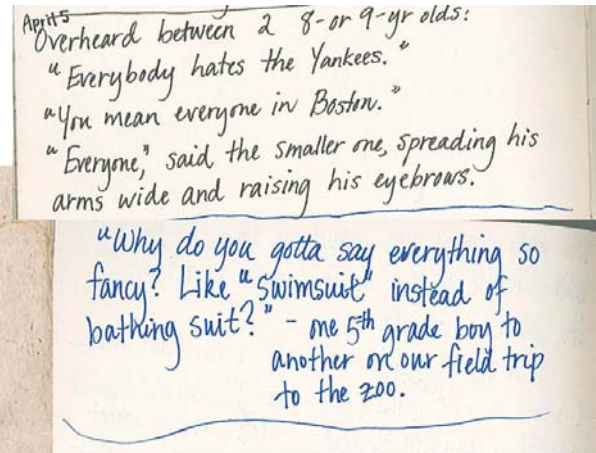 April 5
Overheard between 2 8-or 9-yr olds:
"Everybody hates the Yankees."
"You mean everyone in Boston."
"Everyone," said the smaller one, spreading his
arms wide and raising his eyebrows.
"Why do you gotta say everything so
fancy? Like "swimsuit" instead of
bathing suit?" - one 5th grade boy to
another on our field trip
to the zoo.